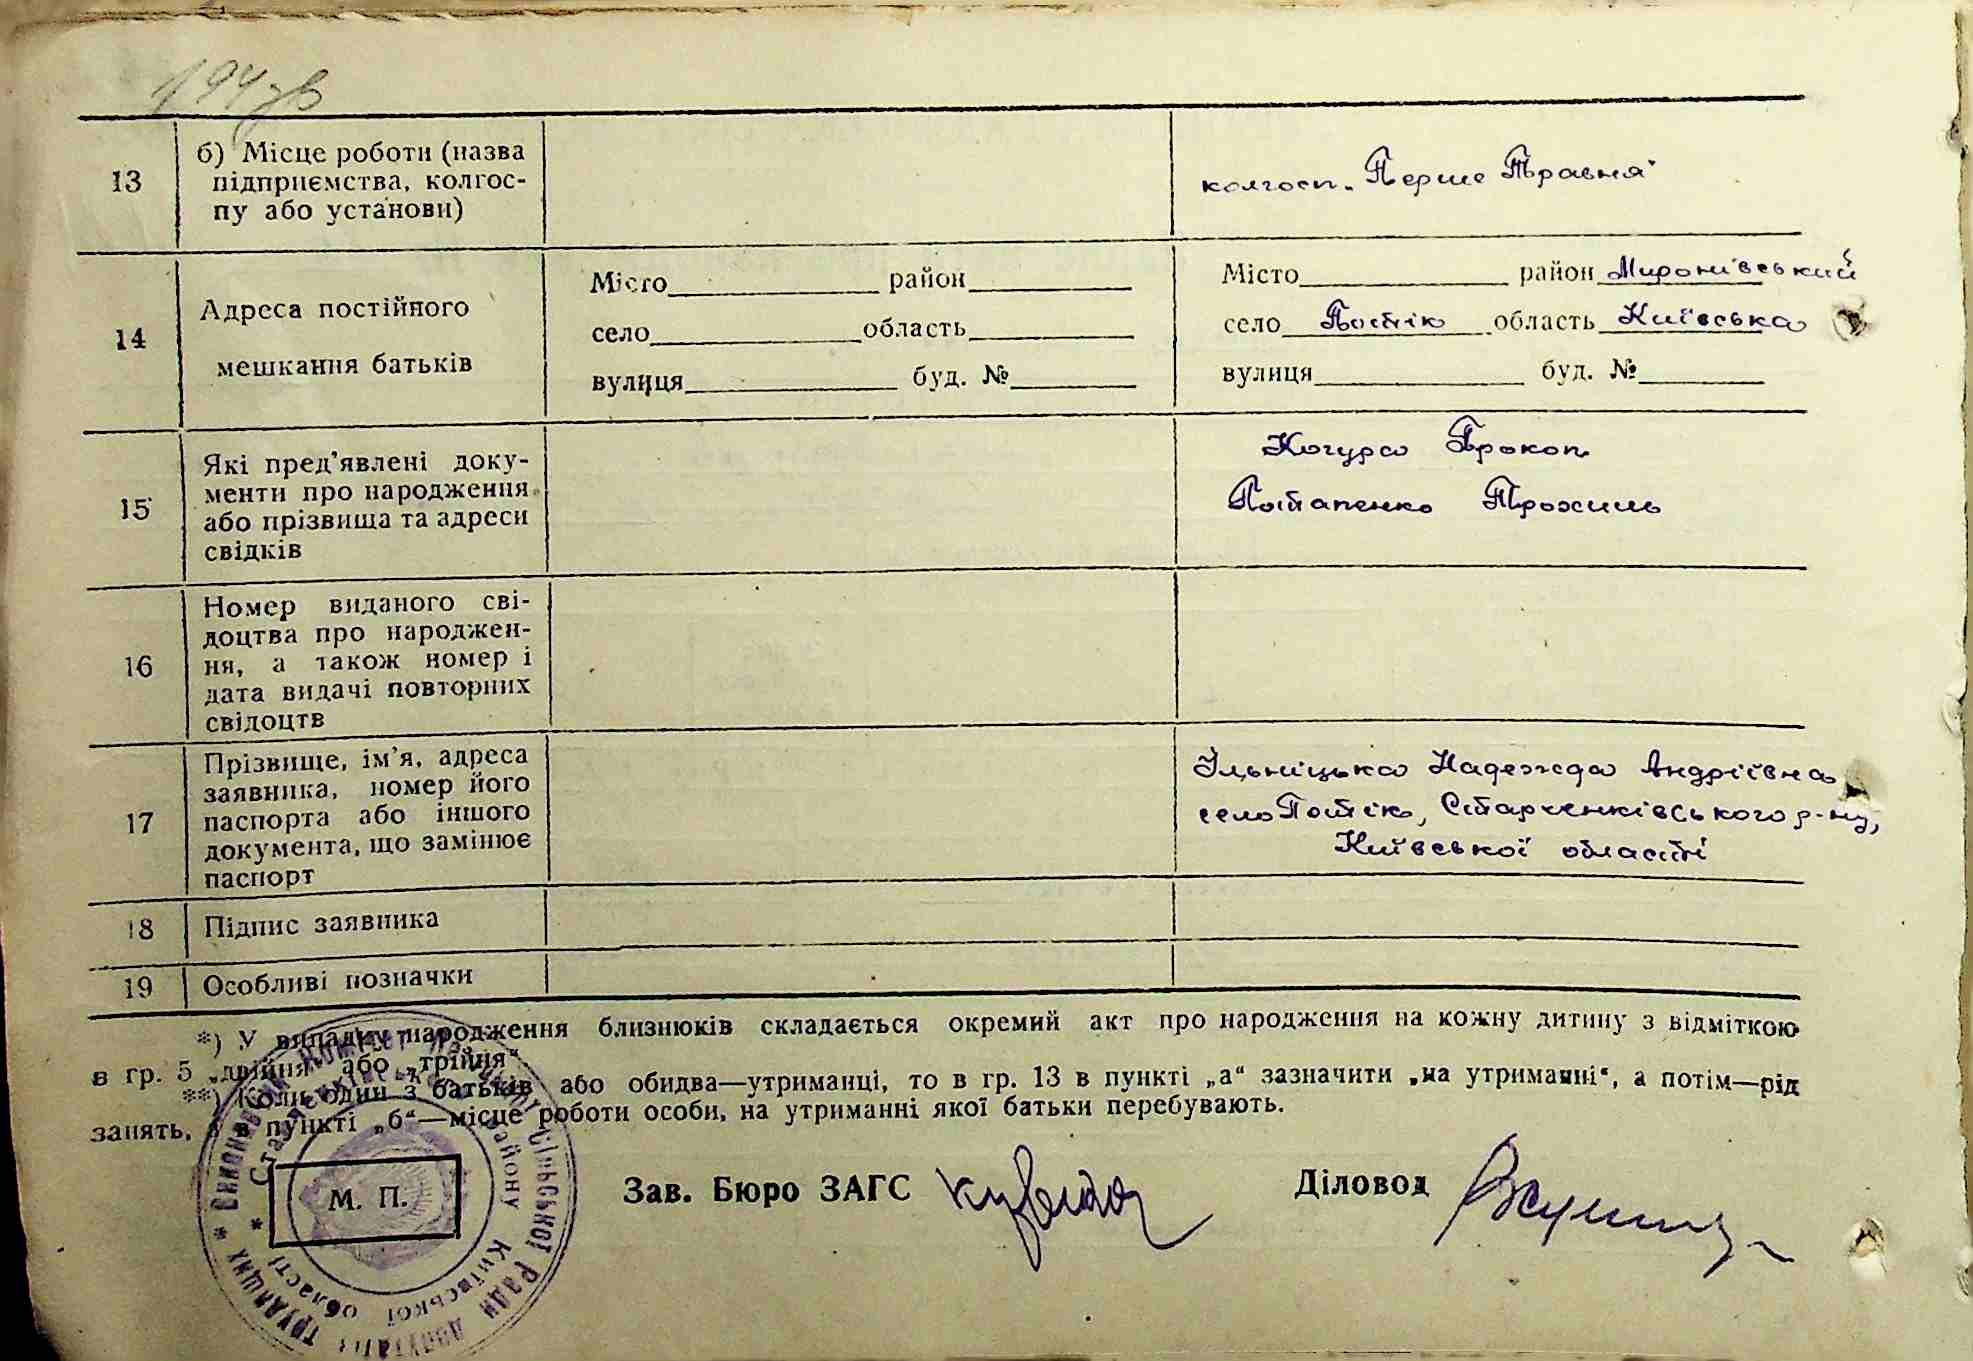 194 зв
13
б) Місце роботи (назва
підприємства, колгос-
пу або установи)
колгосп „Перше Травня"
14
Адреса постійного
мешкання батьків
Місто район
село область
вулиця буд. №
Місто район Миронівський
село Потік область Київська
вулиця буд. №
15
Які пред’явлені доку-
менти про народження
або прізвища та адреси
свідків
Кочура Прокоп
Потапенко Трохим
16
Номер виданого сві-
доцтва про народжен-
ня, а також номер і
дата видачі повторних
свідоцтв
17
Прізвище, ім’я, адреса
заявника, номер його
паспорта або іншого
документа, що замінює
паспорт
Ільніцька Надежда Андріївна
село Потік, Старченківського р-ну,
Київської області
18
Підпис заявника
19
Особливі позначки
*) У випадку народження близнюків складається окремий акт про народження на кожну дитину з відміткою
в гр. 5 „двійня“ або „трійня“.
**) Коли один з батьків або обидва—утриманці, то в гр. 13 в пункті „а“ зазначити „на утриманні“, а потім—рід
занять, а в пункті „б“—місце роботи особи, на утриманні якої батьки перебувають.
М. П.
Зав. Бюро ЗАГС
Діловод
Виконавчий Комітет сільської Ради депутатів трудящих *
району Київської області *